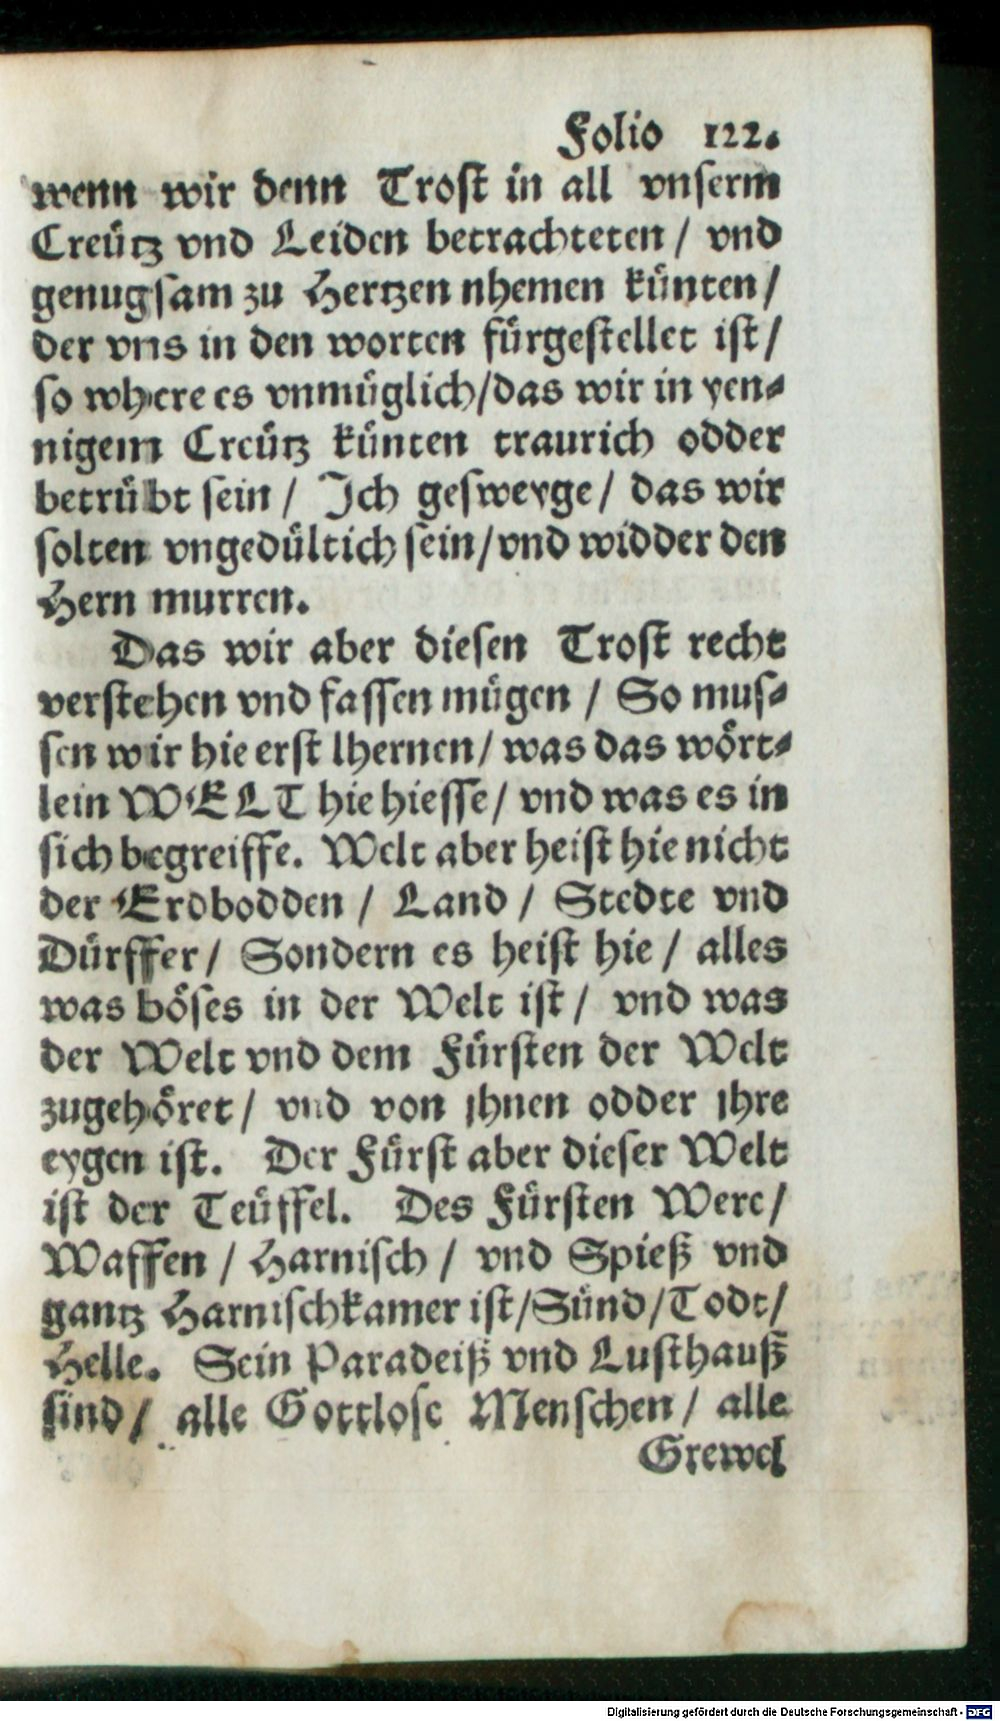 Folio 122.
wenn wir denn Trost in all vnserm
Creütz vnd Leiden betrachteten / vnd
genugsam zu Hertzen nhemen künten /
der vns in den worten fürgestellet ist /
so where es vnmüglich / das wir in yen⸗
nigem Creütz künten traurich odder
betrübt sein / Ich gesweyge / das wir
solten vngedültich sein / vnd widder den
Hern murren.
Das wir aber diesen Trost recht
verstehen vnd fassen mügen / So mus⸗
sen wir hie erst lhernen / was das wört⸗
lein WELT hie hiesse / vnd was es in
sich begreiffe. Welt aber heist hie nicht
der Erdbodden / Land / Stedte vnd
Dürffer / Sondern es heist hie / alles
was böses in der Welt ist / vnd was
der Welt vnd dem Fürsten der Welt
zugehöret / vnd von jhnen odder jhre
eygen ist. Der Fürst aber dieser Welt
ist der Teüffel. Des Fürsten Were /
Waffen / Harnisch / vnd Spieß vnd
gantz Harnischkamer ist / Sünd / Todt /
Helle. Sein Paradeiß vnd Lusthauß
sind / alle Gottlose Menschen / alle
Grewel
Digitalisierung gefördert durch die Deutsche Forschungsgemeinschaft - DFG